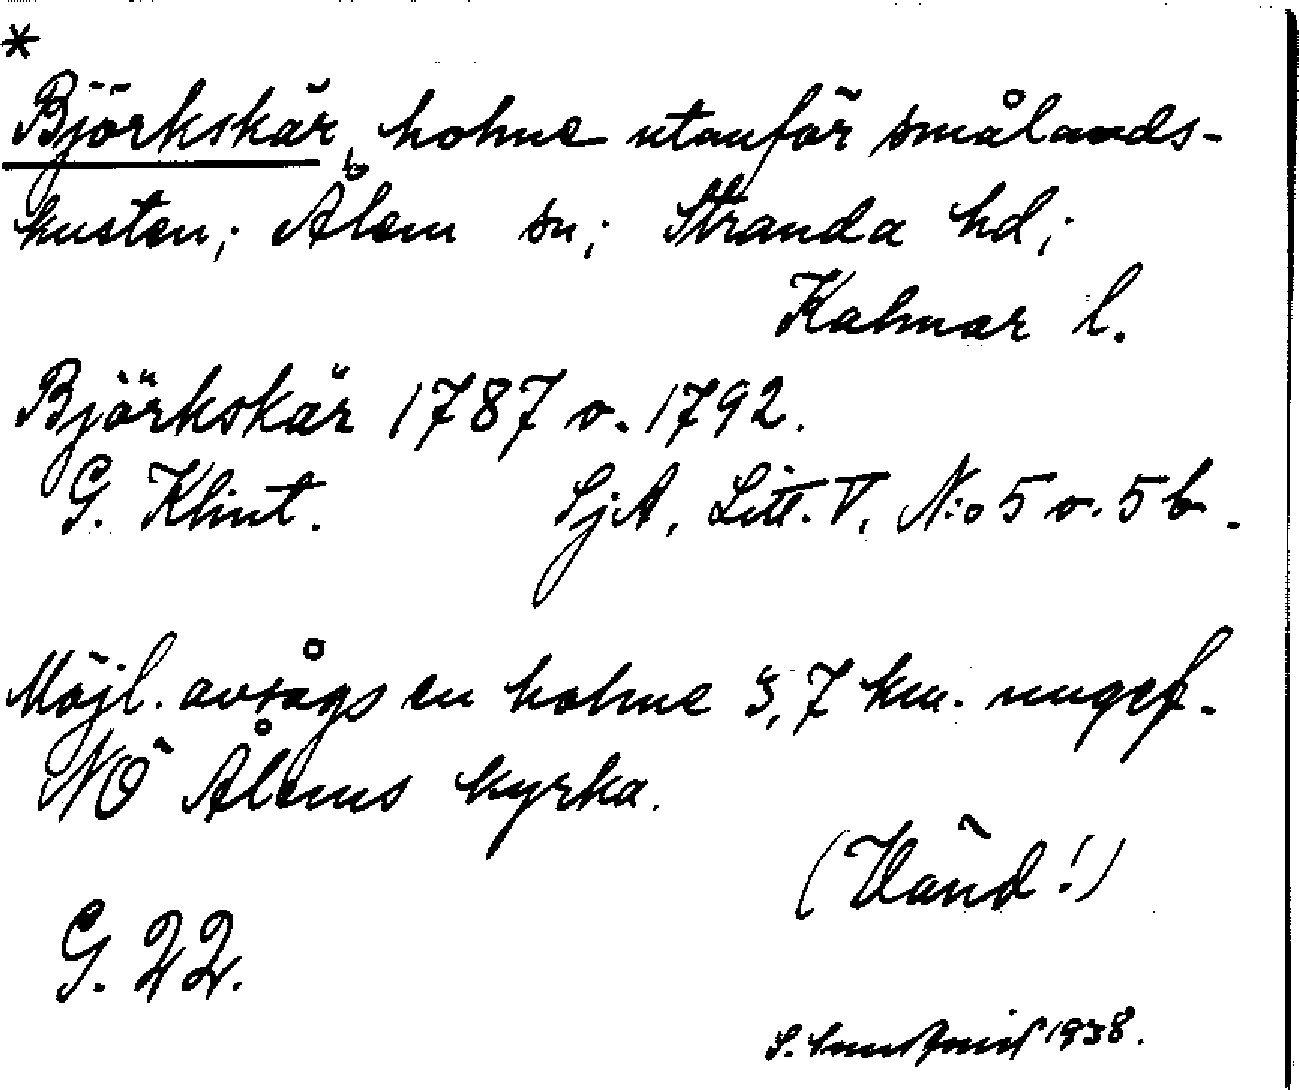 *
Björkskär, holme utanför smålands-
kusten; Ålem sn; Stranda hd;
Kalmar l.
Björkskär 1787 o. 1792.
G. Klint. SjA, Litt. V, N:o 5 o. 5 b.
Möjl. avsågs en holme 3,7 km. ungef.
NÖ Ålems kyrka.
(Vänd!)
G. 22.
S. 1938.